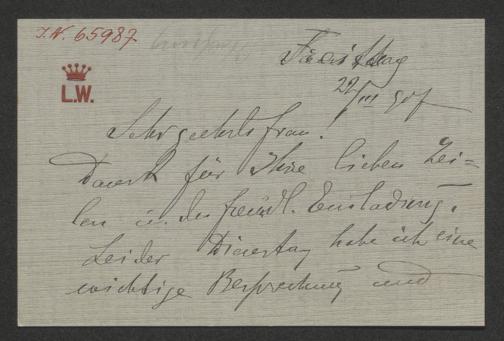 I.N. 65987
L.W.
22/III 907
Sehr geehrte Frau!
Dank für Ihre lieben Zei-
len u. die freundl. Einladung.
Leider Dienstag habe ich eine
wichtige Besprechung und